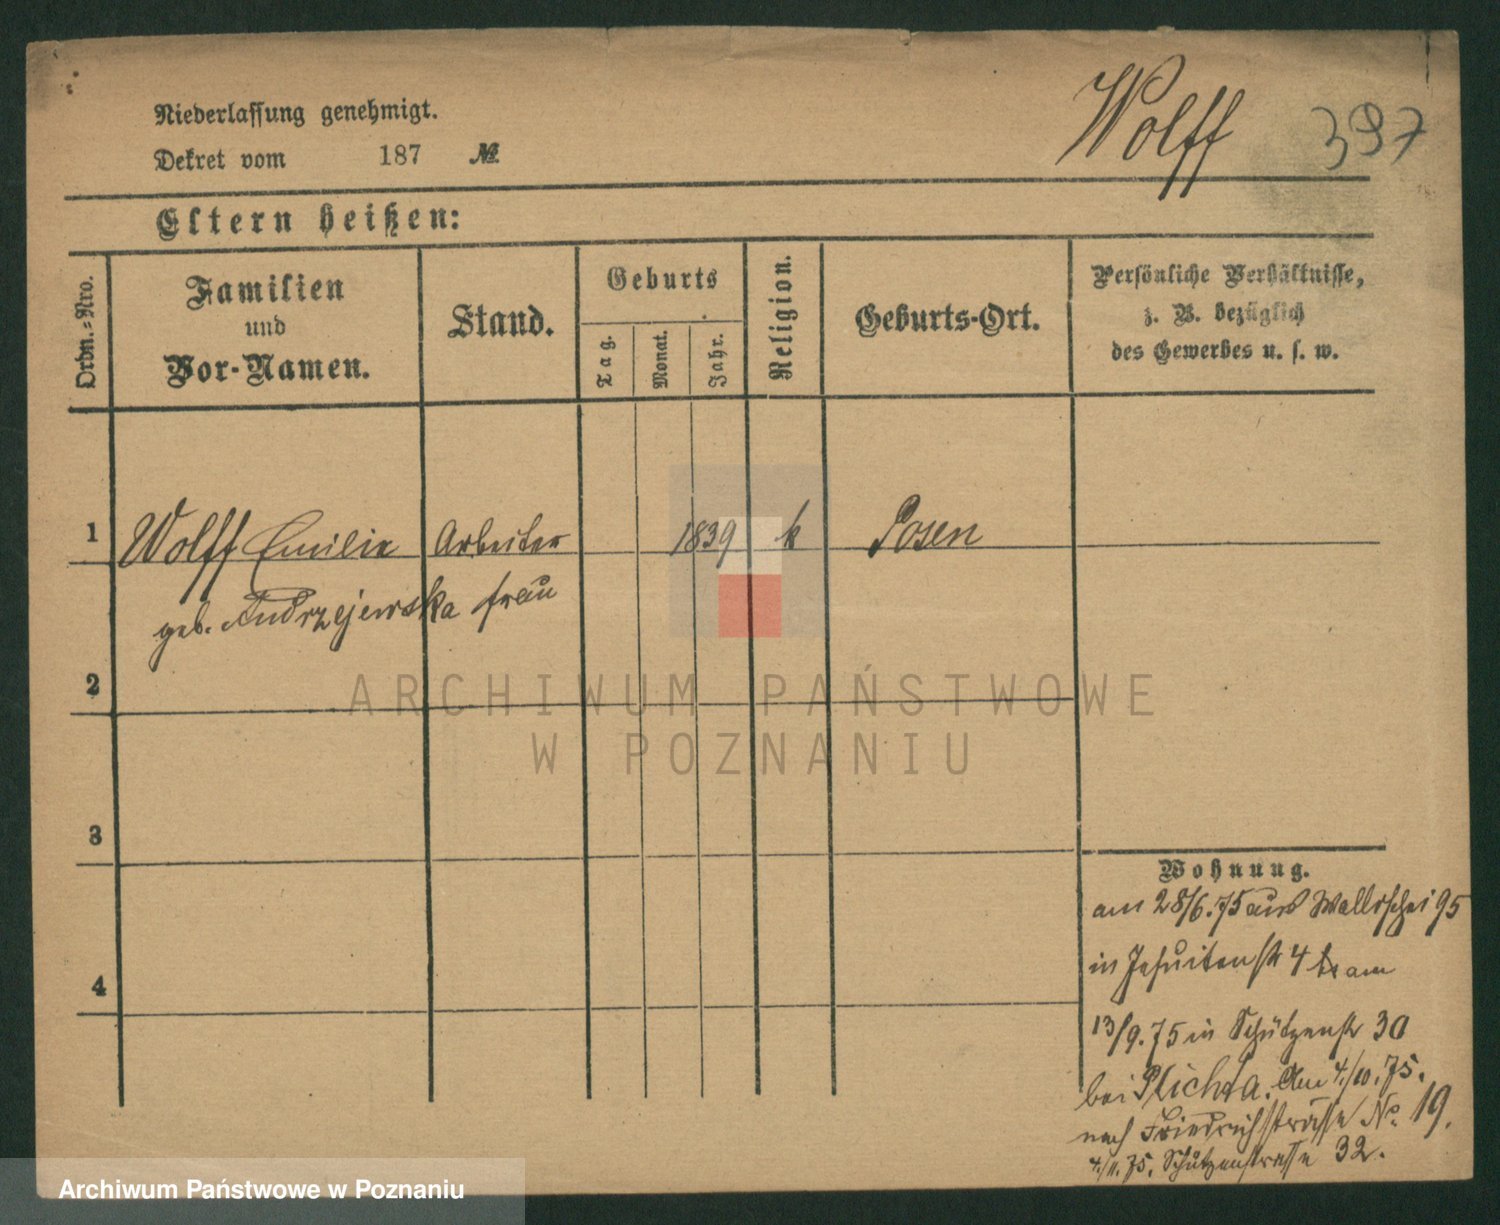 Niederlassung genehmigt.
Dekret vom 187 №
Wolff 397
Eltern heißen:
Ordn.-Nro.
Familien
und
Vor-Namen.
Stand.
Geburts
Tag.
Monat.
Jahr.
Religion.
Geburts-Ort.
Persönliche Verhältnisse,
z. B. bezüglich
des Gewerbes u. s. w.
1 Wolff Emilie Arbeiter 1839 k Posen
geb. Andrzejewska frau
2
3
4
ARCHIWUM PAŃSTWOWE
W POZNANIU
Wohnung.
am 28/6.75 aus Wallischei 95
in Jesuitenstr 4 am
13/9.75 in Schützenstr 30
bei Plichta. Am 4./10.75.
nach Friedrichstrasse No. 19.
4./11.75. Schützenstrasse 32.
Archiwum Państwowe w Poznaniu